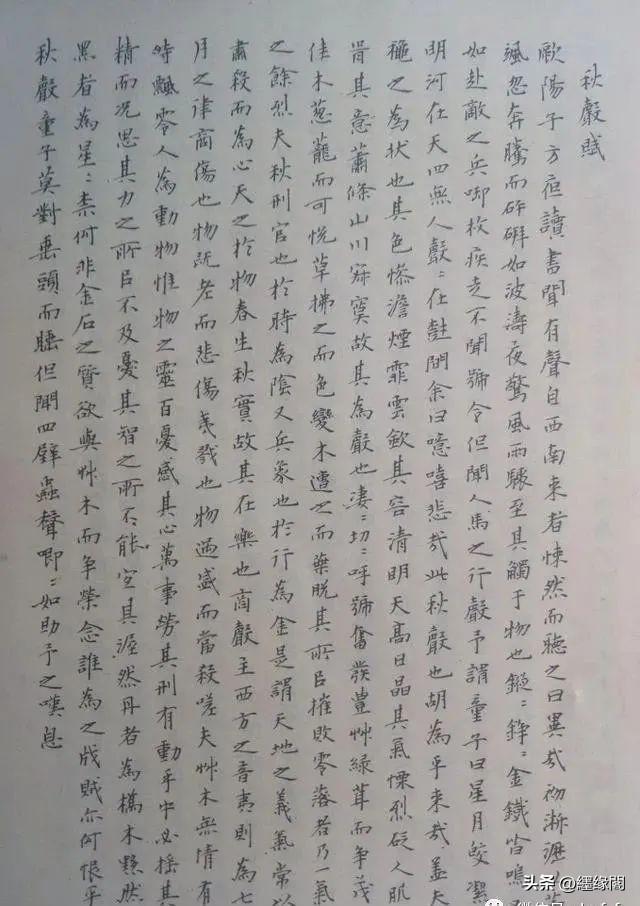 秋聲賦
歐陽子方夜讀書聞有聲自西南来者悚然而聽之曰異哉初淅瀝
颯忽奔騰而砰磞如波濤夜驚風雨驟至其觸于物也鏦〻錚〻金鐵皆鳴
如赴敵之兵啣枚疾走不聞號令但聞人馬之行聲予謂童子曰星月皎潔
明河在天四無人聲〻在樹間余曰噫嘻悲哉此秋聲也胡為乎来哉盖夫
穐之為狀也其色惨澹煙霏雲歛其容清明天高日晶其氣慄烈砭人肌
骨其意蕭條山川寂寞故其為聲也凄〻切〻呼號奮發豊艸緑茸而争茂
佳木葱蘢而可悦草拂之而色變木遭之而葉脱其所㠯摧敗零落者乃一氣
之餘烈夫秋刑官也於時為陰又兵象也於行為金是謂天地之義氣常以
肅殺而為心天之於物春生秋實故其在樂也商聲主西方之音夷則為七
月之律商傷也物既老而悲傷夷戮也物過盛而當殺嗟夫艸木無情有
時飄零人為動物惟物之靈百憂感其心萬事勞其刑有動乎中必摇其
精而况思其力之所㠯不及憂其智之所不能宜其渥然丹者為槁木黟然
黑者為星〻柰何非金石之質欲與艸木而争榮念誰為之戕賊亦何恨乎
秋聲童子莫對垂頭而睡但聞四壁蟲聲唧〻如助予之嘆息
头条